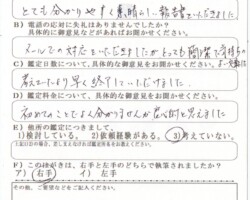 とても分かりやすく素晴しい報告書でいただきました
B) 電話の応対に失礼はありませんでしたか?
具体的に御意見などがあればお聞かせください。
メールでの対応をいただきましたがとっても
C) 鑑定日数について、具体的な御意見をお聞かせください。
考えたより早く終了していただけました。
D) 鑑定料金について、具体的な御意見をお聞かせください。
初めてのことでよく分かりませんが
と思えました
E) 他所の鑑定につきまして。
1)検討している。 2)依頼経験がある。 3)考えていない。
F) このはがきは、右手と左手のどちらで執筆されましたか?
ア) 右手 イ) 左手
その他、ご要望などをご記入ください。